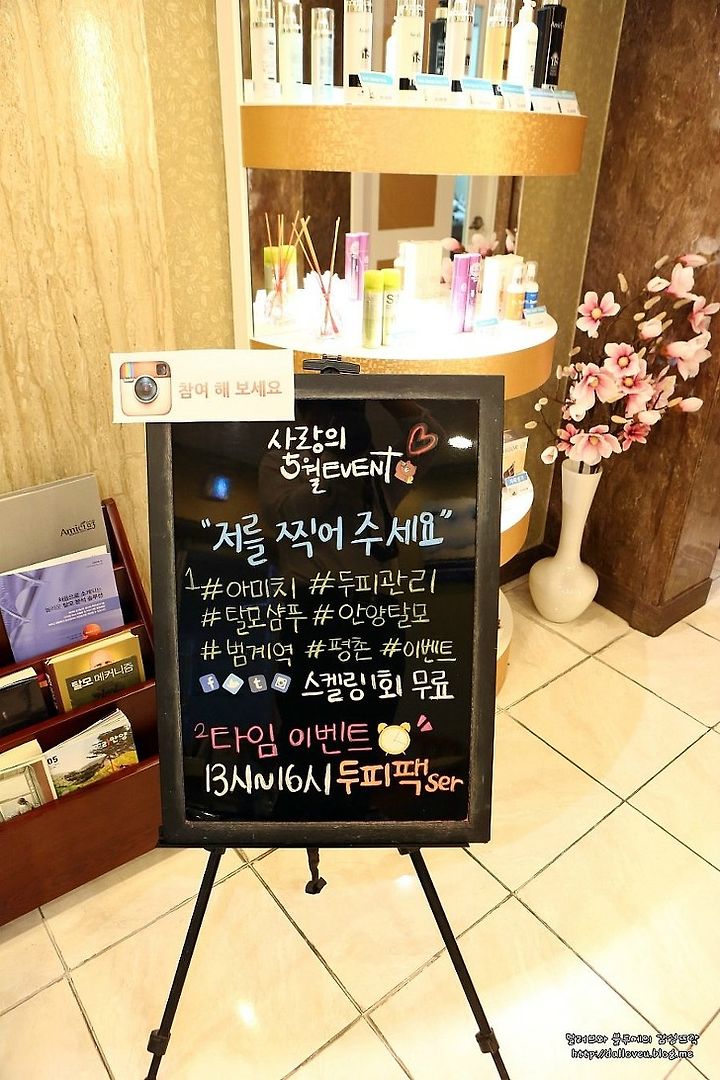 참여 해 보세요
사랑의
5월 EVENT
"저를 찍어 주세요"
1 #아미치 #두피관리
#탈모샴푸 #안양탈모
#범계역 #평촌 #이벤트
스켈링 1회 무료
2 타임 이벤트
13시~16시 두피팩 ser
Amicci
처음으로 소개되는
놀라운 탈모 분석 솔루션
탈모 메커니즘
05
http://dalloveu.blog.me